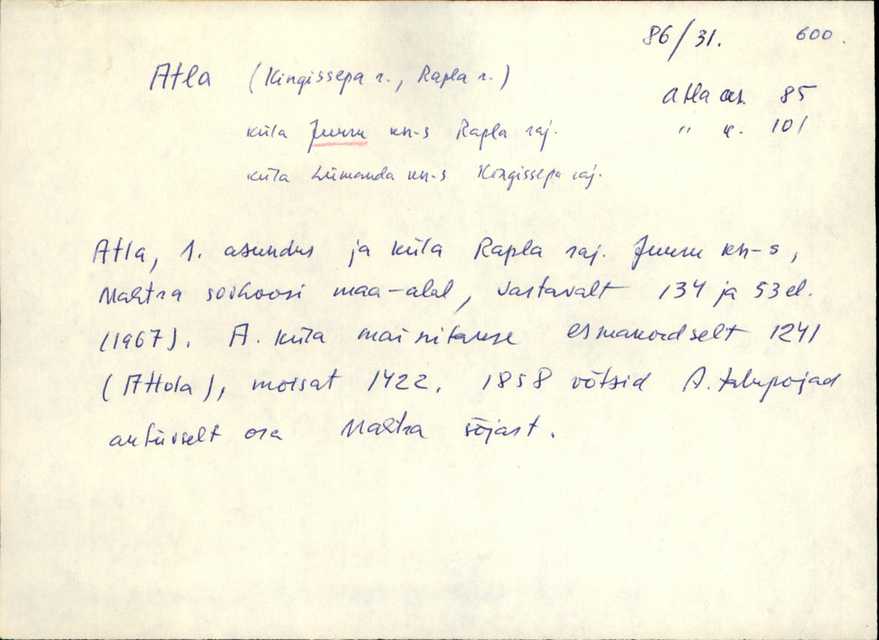 86/31. 600.
Atla (Kingissepa r., Rapla r.)
Atla as. 85
küla Juuru kn-s Rapla raj.
" k. 101
küla Lümanda kn-s Kingissepa raj.
Atla, 1. asundus ja küla Rapla raj. Juuru kn-s,
Mahtra sovhoosi maa-alal, vastavalt 134 ja 53 el.
(1967). A. küla mainitakse esmakordselt 1241
(Attola), mõisat 1422. 1858 võtsid A. talupojad
aktiivselt osa Mahtra sõjast.